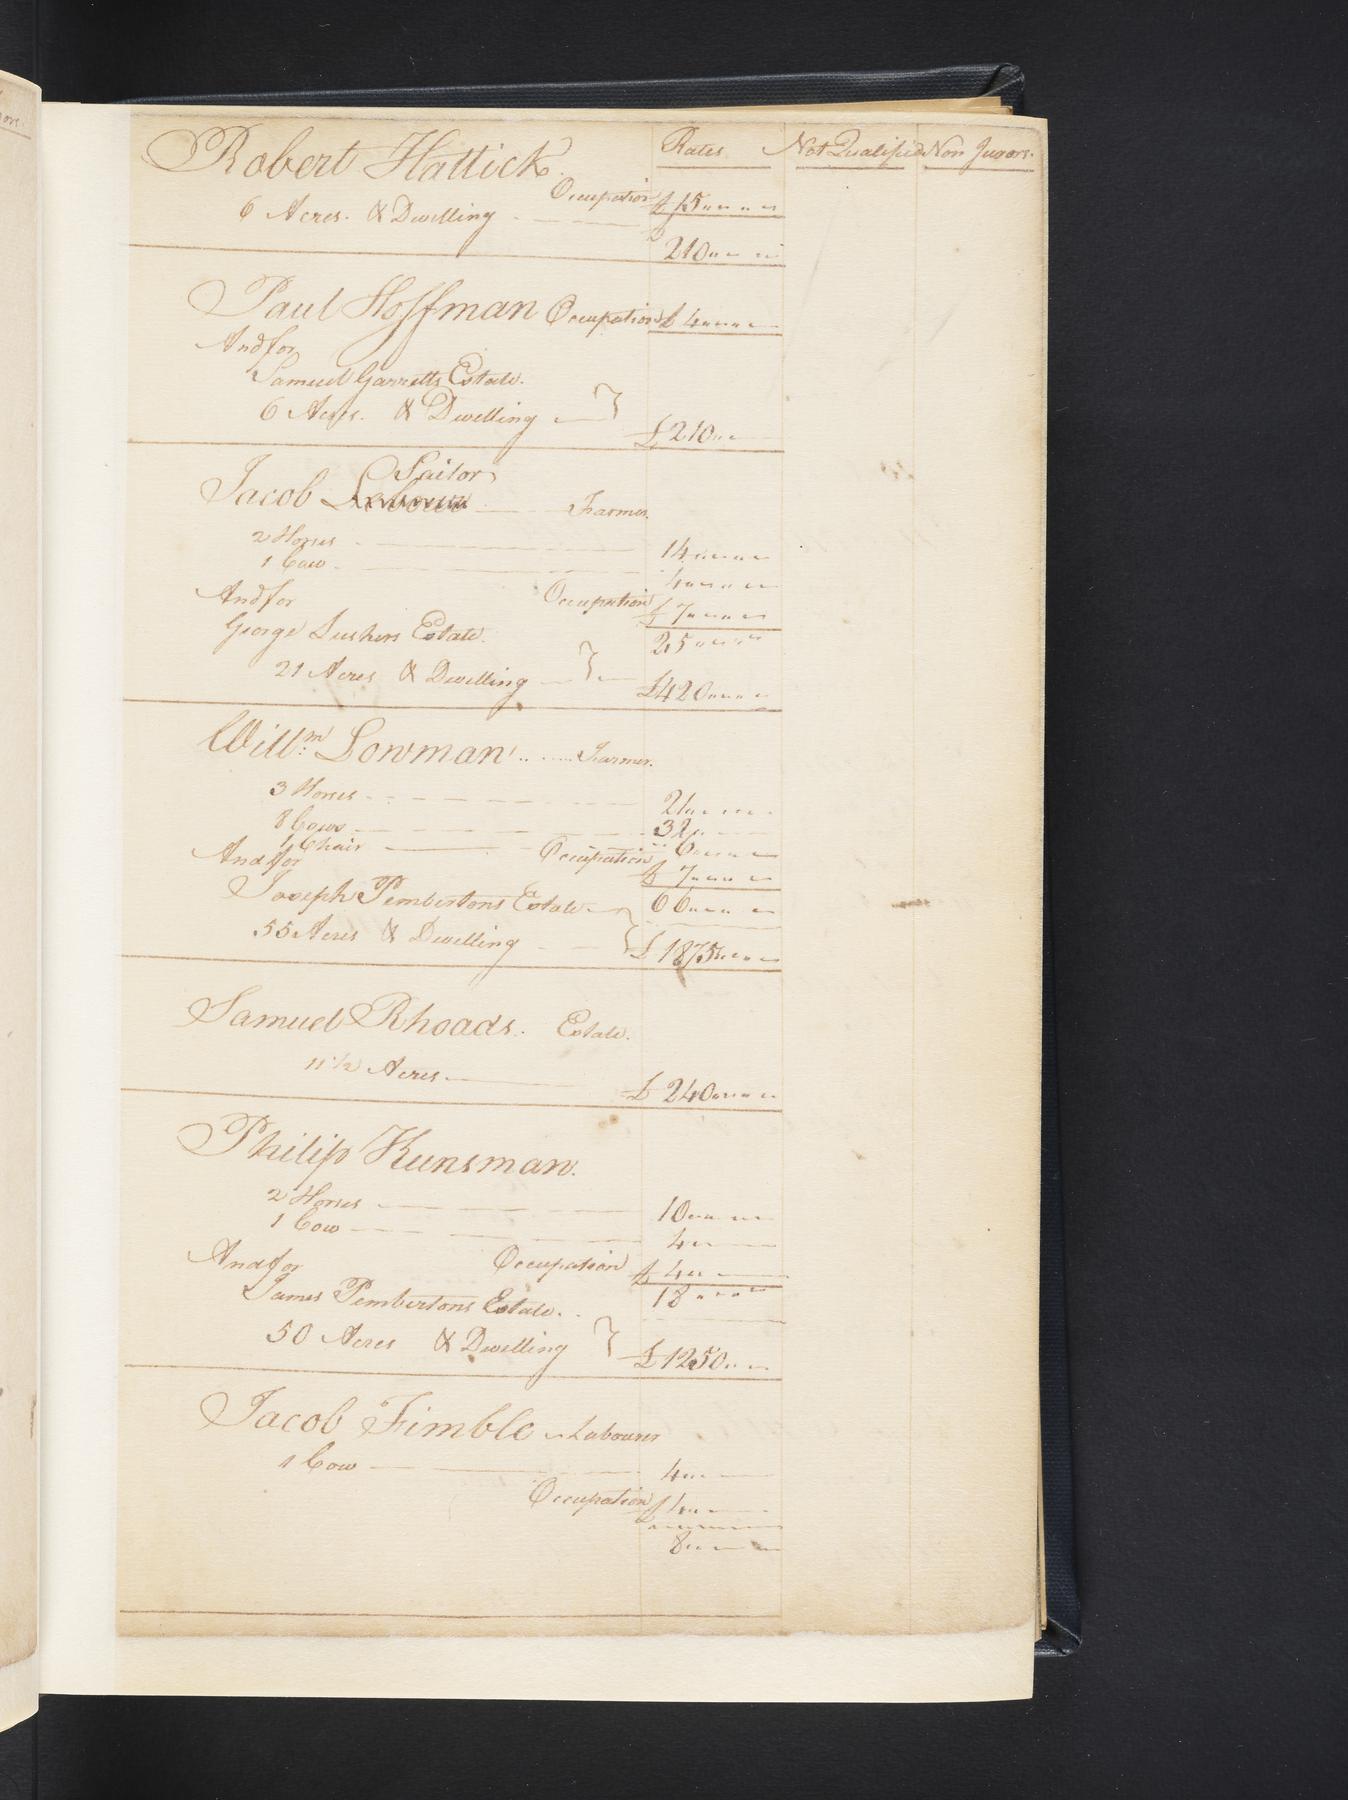 Rates Not Qualified Non Jurors.
Robert Hattick.
Occupation £ 15 " " "
6 Acres. & Dwelling
210 " " "
Paul Hoffman Occupation £ 4 " " "
And for
Samuel Garretts Estate.
6 Acres. & Dwelling
£ 210 "
Sailor
Jacob Farmer.
2 Horses 14 " " "
1 Cow 4 " " "
And for Occupation £ 7 " " "
George Lushers Estate. 25 " " "
21 Acres & Dwelling £ 420 " " "
Willm. Lowman Farmer.
3 Horses 21 " " "
8 Cows 32 "
1 Chair 6 " " "
And for Occupation £ 7 " " "
Joseph Pembertons Estate 66 " " "
55 Acres & Dwelling £ 1875 " " "
Samuel Rhoads. Estate.
11 1/2 Acres
£ 240 " " "
Philip Kunsman.
2 Horses 10 " " "
1 Cow 4 "
And for Occupation £ 4 "
James Pembertons Estate. 18 " " "
50 Acres & Dwelling £ 1250 " "
Jacob Fimble Labourer
1 Cow 4 "
Occupation £ 4 "
8 " "